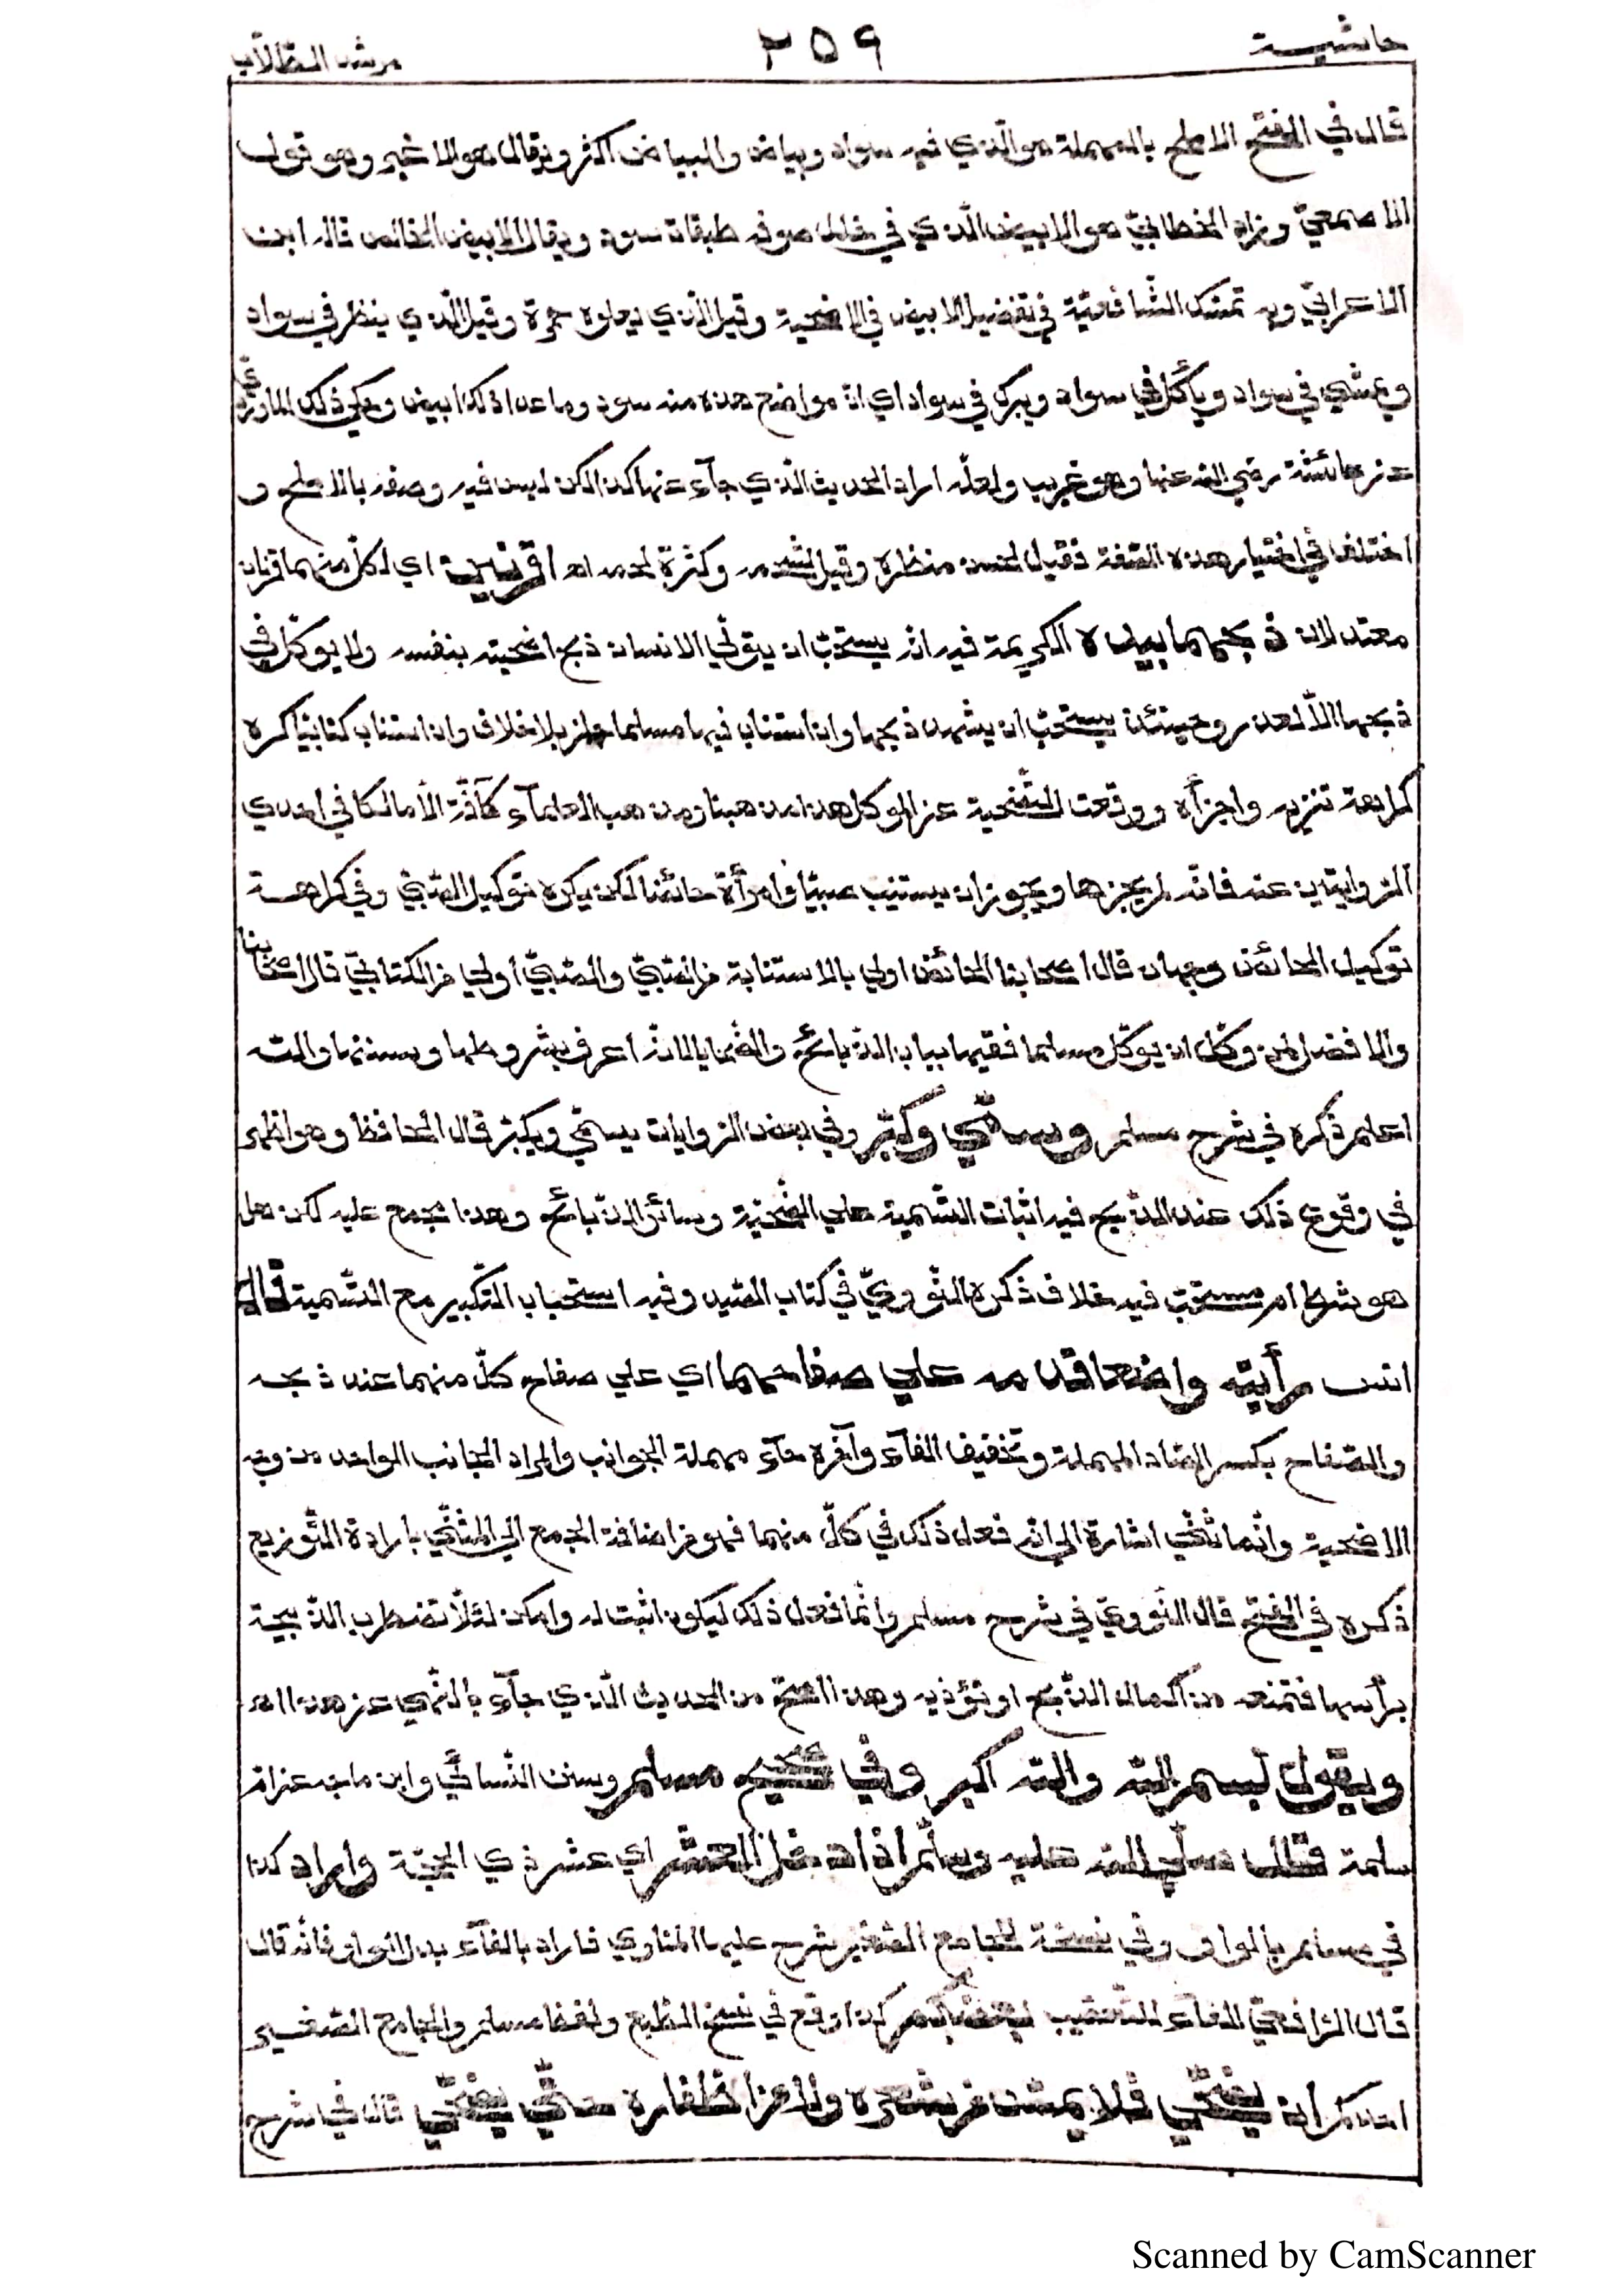 حاشية ٢٥٩ مرشد الطّلّاب
قال في الفتح الاملح بالمهملة هو الّذي فيه سواد وبياض والبياض اكثر ويقال هو الاغبر وهو قول
الاصمعيّ وزاد الخطابيّ هو الابيض الّذي في خلل صوفه طبقات سود ويقال الابيض الخالص قاله ابن
الاعرابيّ وبه تمسّك الشّافعيّة في تفضيل الابيض في الاضحية وقيل الّذي يعلوه حمرة وقيل الّذي ينظر في سواد
ويمشي في سواد ويأكل في سواد ويبرك في سواد اي انّ مواضع هذه منه سود وما عدا ذلك ابيض وحكي ذلك الماورديّ
عن عائشة رضي الله عنها وهو غريب ولعلّه اراد الحديث الّذي جآء عنها كذا لكن ليس فيه وصفه بالاملح و
اختلف في اختيار هذه الصّفة فقيل لحسن منظره وقيل لشحمه وكثرة لحمه اه اقرنين اي لكلّ منهما قرنان
معتدلان ذبحهما بيده الكريمة فيه انّه يستحبّ ان يتولّي الانسان ذبح اضحيته بنفسه ولا يوكّل في
ذبحها الّا لعذر وحينئذ يستحبّ ان يشهد ذبحها وان استناب فيها مسلما جاز بلا خلاف وان استناب كتابيّا كره
كراهة تنزيه واجزأه ووقعت التّضحية عن الموكل هذا مذهبنا ومذهب العلمآء كآفّة الّا مالكا في احدي
الرّوايتين عنه فانّه لم يجزها ويجوز ان يستنيب صبيّا او امرأة حائضا لكن يكره توكيل الصّبيّ وفي كراهة
توكيل الحائض وجهان قال اصحابنا الحائض اولي بالاستنابة من الصّبيّ والصّبيّ أولي من الكتابيّ قال اصحابنا
والافضل لمن وكّل ان يوكّل مسلما فقيها بباب الذّبائح والضّحايا لانّه اعرف بشروطها وسننها والله
اعلم ذكره في شرح مسلم وسمّي وكبّر وفي بعض الرّوايات يسمّي ويكبّر قال الحافظ وهو اظهر
في وقوع ذلك عند الذّبح فيه اثبات التّسمية علي الضّحيّة وسائر الذّبائح وهذا مجمع عليه لكن هل
هو شرط ام مستحبّ فيه خلاف ذكره النّوويّ في كتاب الصّيد وفيه استحباب التّكبير مع التّسمية قال
انس رأيته واضعا قدمه علي صفاحهما اي علي صفاح كلّ منهما عند ذبحه
والصّفاح بكسر الصّاد المهملة وتخفيف الفآء وآخره حآء مهملة الجوانب والمراد الجانب الواحد من وجه
الاضحية وانّما ثنّي اشارة الي انّه فعل ذلك في كلّ منهما فهو من اضافة الجمع الي المثنّي بارادة التّوزيع
ذكره في الفتح قال النّوويّ في شرح مسلم وانّما فعل ذلك ليكون اثبت له وامكن لئلّا تضطرب الذّبيحة
برأسها فتمنعه من اكمال الذّبح او تؤذيه وهذا اصحّ من الحديث الّذي جآء بالنّهي عن هذا اه
ويقول بسم الله والله اكبر وفي صحيح مسلم وسنن النّسائيّ وابن ماجه عن امّ
سلمة قال صلّي الله عليه وسلّم اذا دخل العشر اي عشر ذي الحجّة واراد كذا
في مسلم بالواو وفي نسخة الجامع الصّغير شرح عليها المناوي فاراد بالفآء بدل الواو فانّه قال
قال الرّافعيّ الفآء للتّعقيب كذا وقع في نسخ الطّبع ولفظ مسلم والجامع الصّغير
احدكم ان يضحّي فلا يمسّ من شعره ولا من اظفاره حتّي يضحّي قال في شرح
Scanned by CamScanner